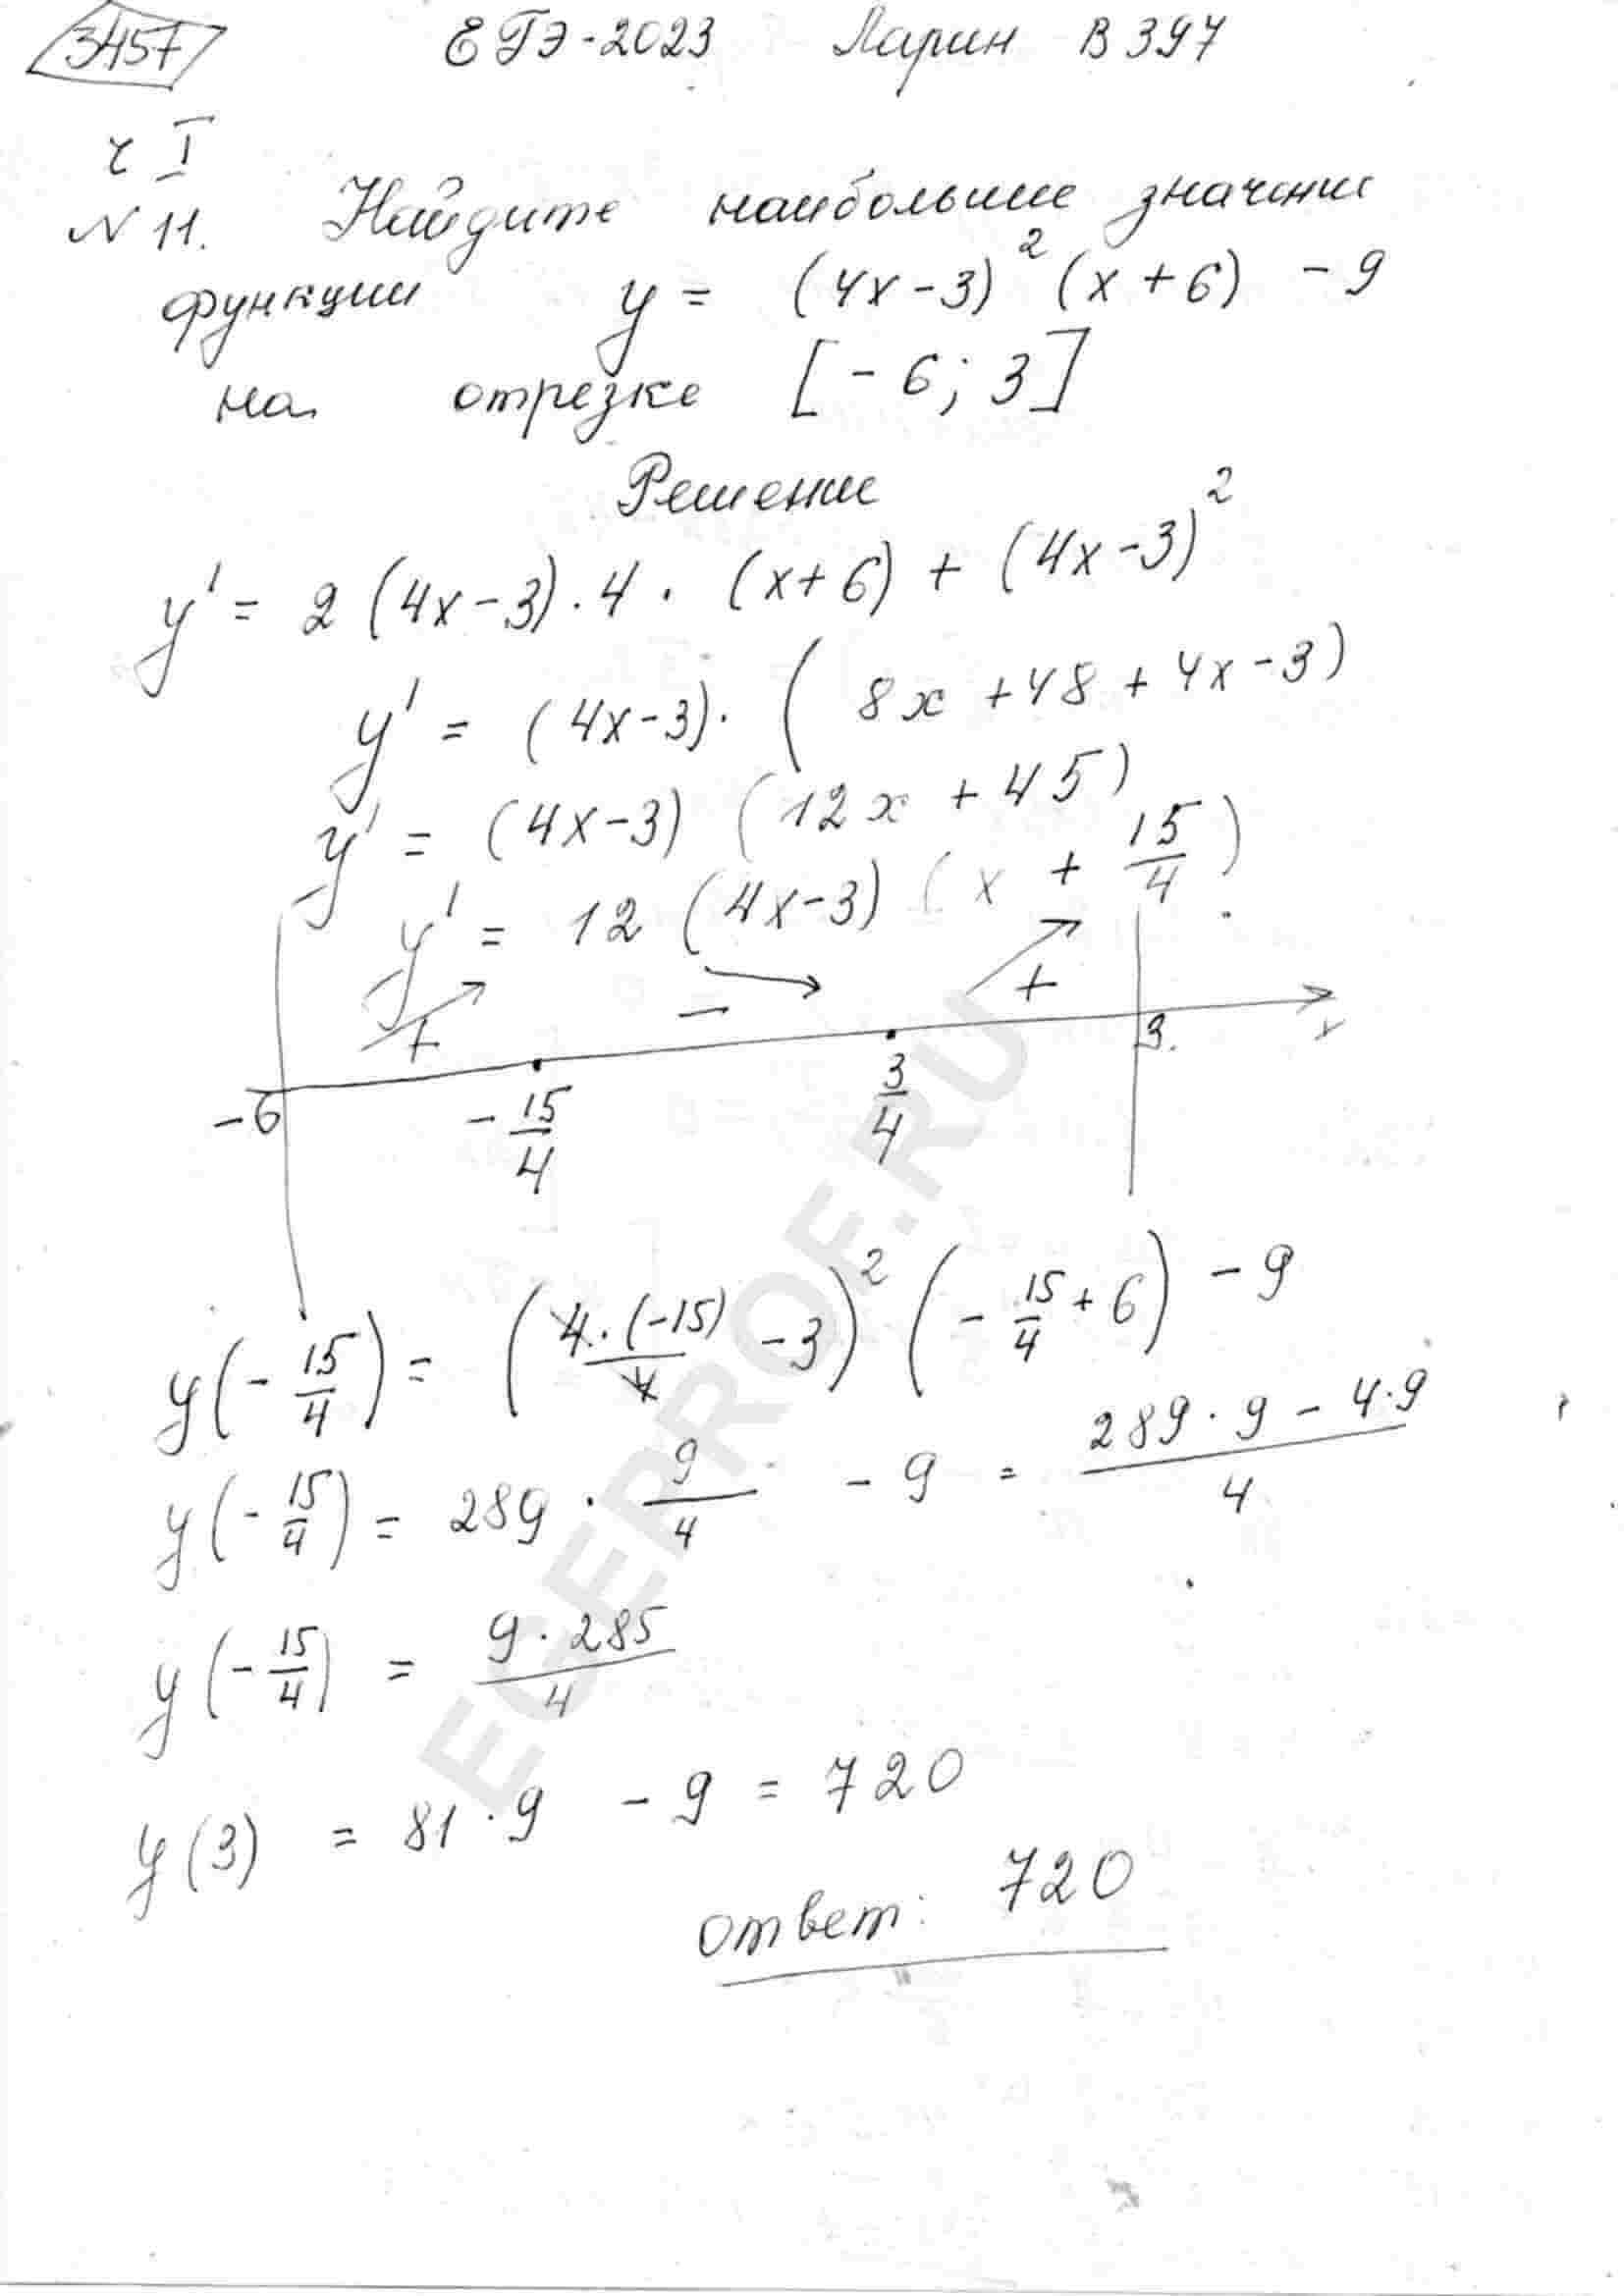 3457 ЕГЭ-2023 Ларин В 397
ч I
№ 11. Найдите наибольшее значение
функции y = (4x-3)² (x+6) - 9
на отрезке [-6; 3]
Решение
y' = 2(4x-3)·4·(x+6) + (4x-3)²
y' = (4x-3)·(8x+48+4x-3)
y' = (4x-3)(12x+45)
y' = 12(4x-3)(x + 15/4)
+ - +
-6 -15/4 3/4 3 x
y(-15/4) = (4·(-15)/4 - 3)² (-15/4 + 6) - 9
y(-15/4) = 289 · 9/4 - 9 = (289·9 - 4·9)/4
y(-15/4) = 9·285/4
y(3) = 81·9 - 9 = 720
ответ: 720
EGEPROF.RU